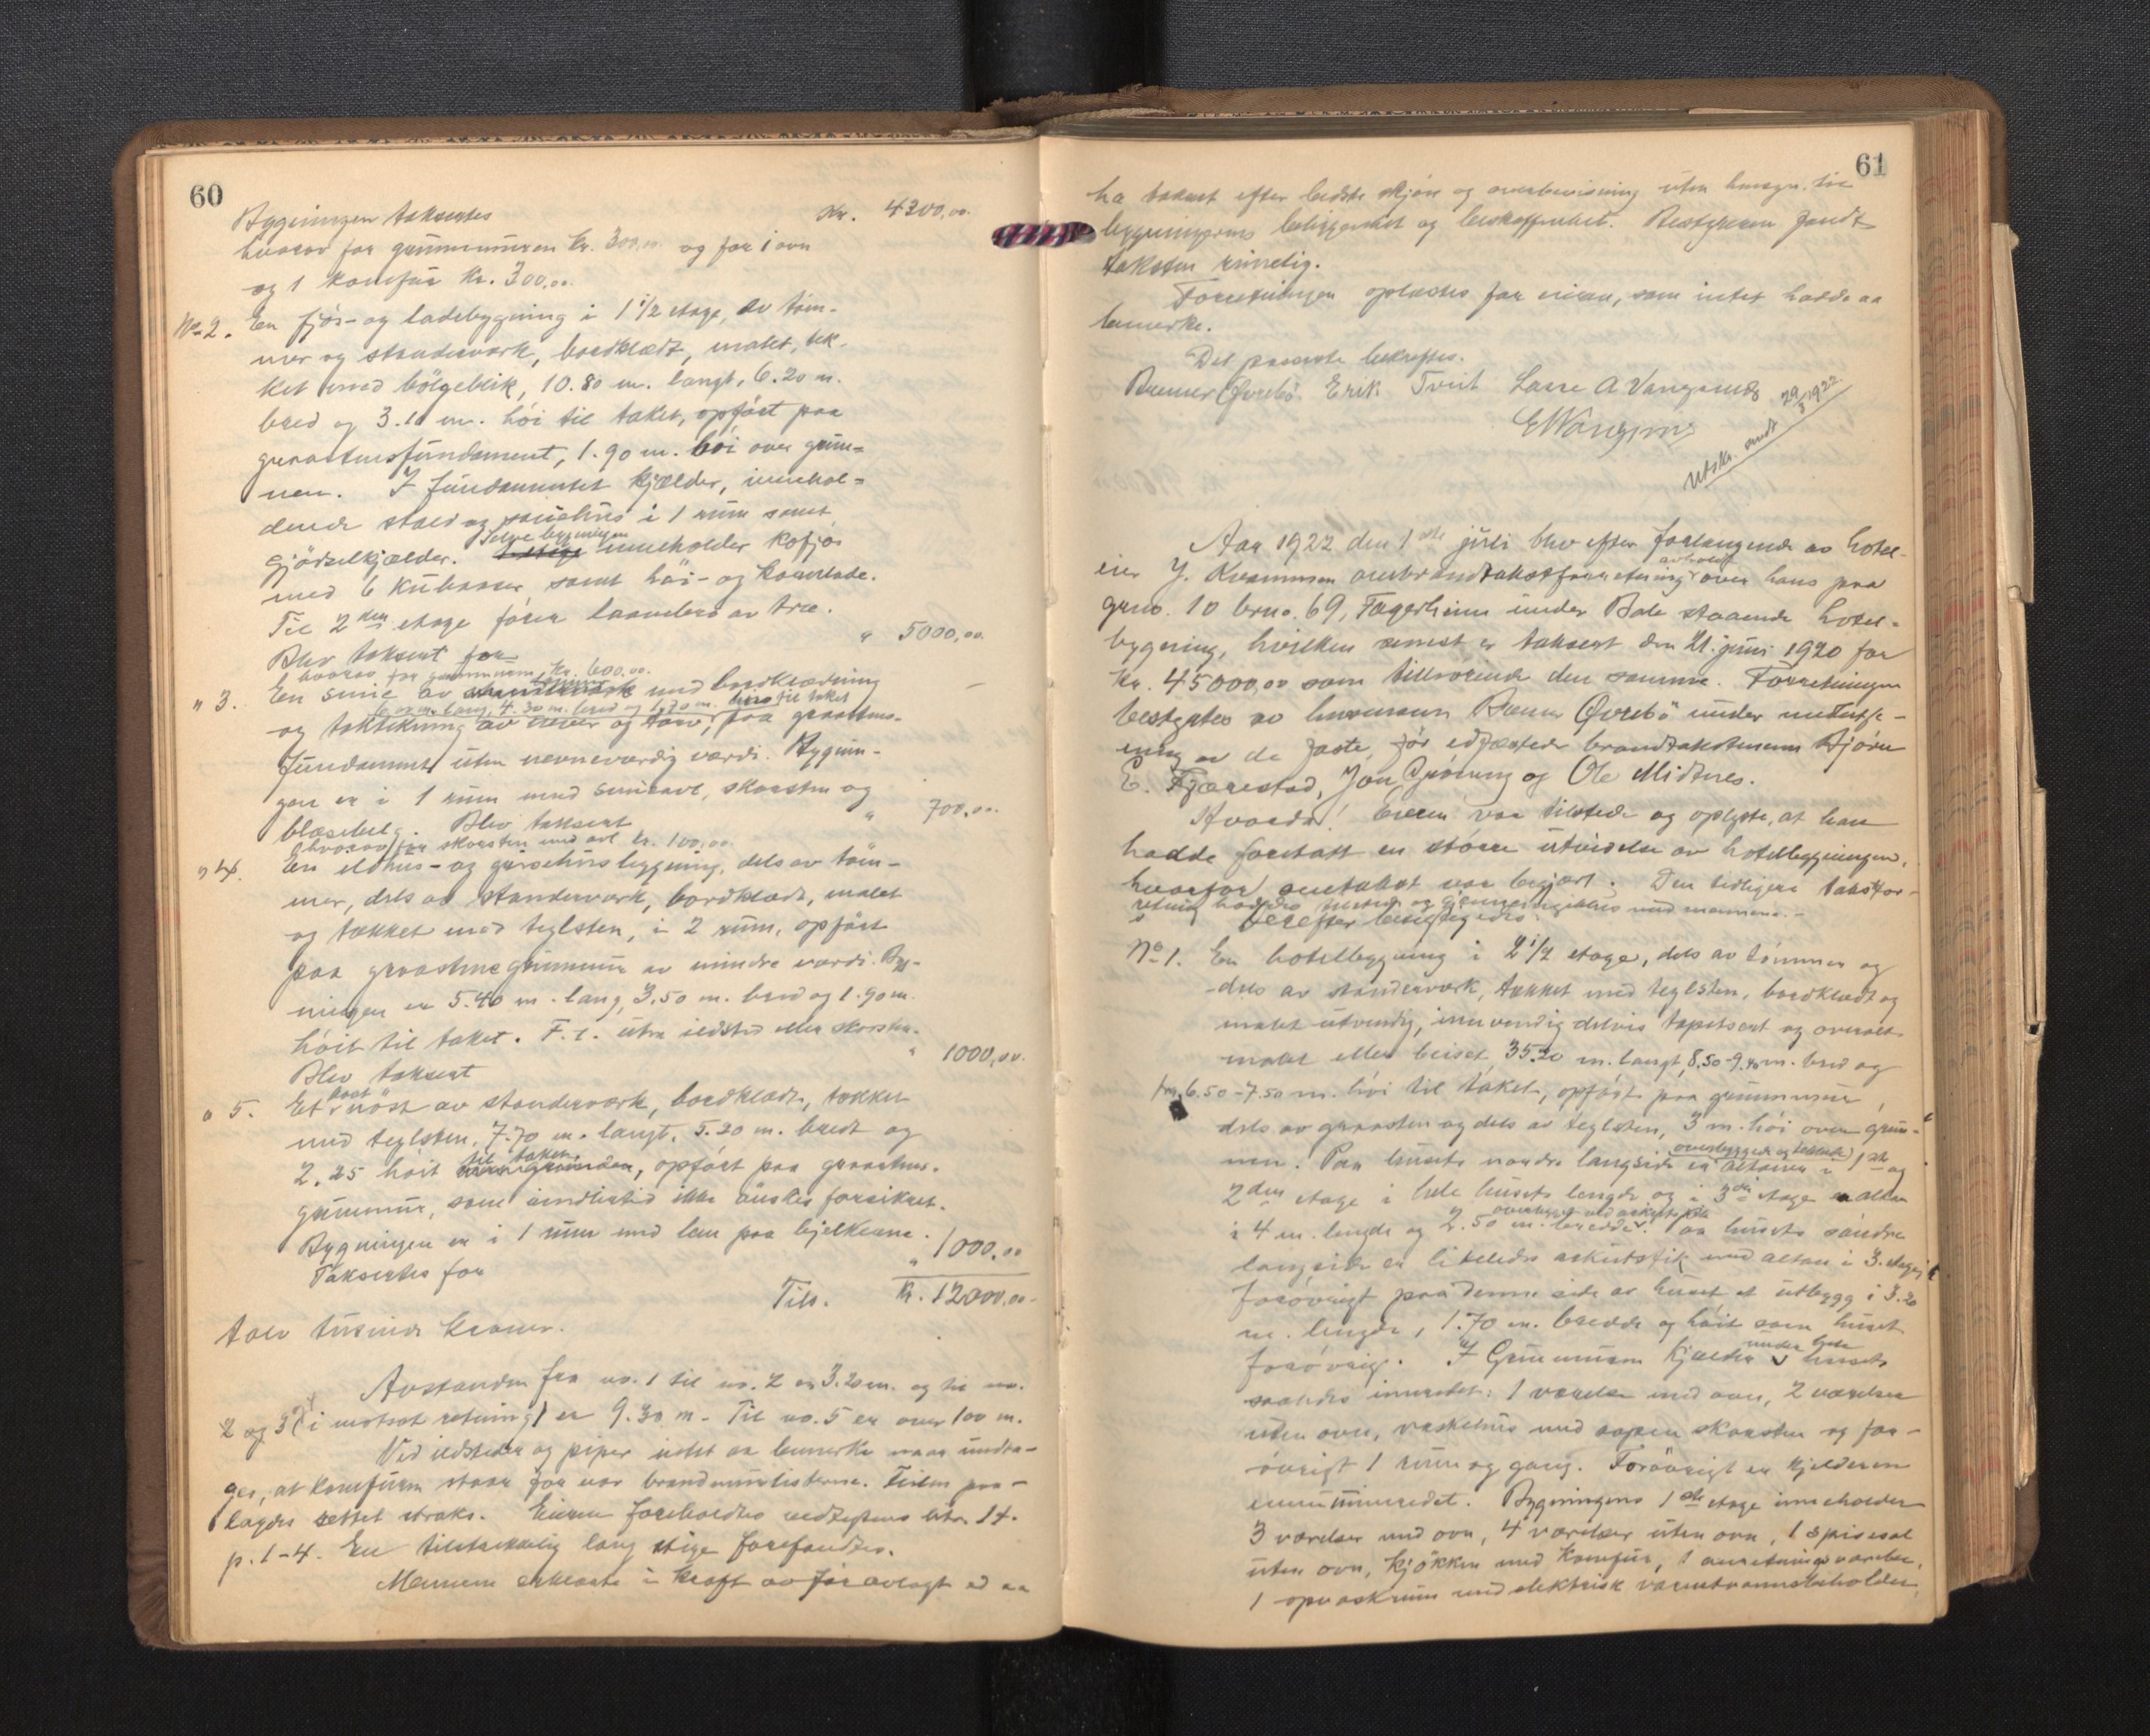 60
Bygningen takseres Kr. 4300,00.
hvorav for grunnmuren kr. 300,00 og for 1 ovn
og 1 komfur kr. 300,00.
No 2. En fjøs- og ladebygning i 1 1/2 etage, av töm-
mer og standerverk, bordklædt, malet, tek-
ket med bölgeblik, 10.80 m. langt, 6.20 m.
bred og 3.10 m. höi til taket, opfört paa
graastensfundament, 1.90 m. höi over grun-
nen. I fundamentet kjælder, innehol-
dende stald og sauehus i 1 rum samt
gjödselkjælder. Selve bygningen inneholder kofjös
med 6 kubaaser, samt höi- og kornlade.
Til 2den etage förer laavebro av træ.
Blev taksert for " 5000,00.
hvorav for grunnmuren, kr. 600,00.
" 3. En smie av tömmer med bordklædning
6.00 m. lang, 4.30 m. bred og 1.70 m. höi til taket
og taktekning av næver og torv, paa graastens-
fundament uten nevneværdig værdi. Bygnin-
gen er i 1 rum med smieavl, skorsten og
blæsebelg. Blev taksert " 700,00.
hvorav for skorsten med avl kr. 100,00.
" 4. En eldhus- og grisehusbygning, dels av töm-
mer, dels av standerverk, bordklædt, malet
og tækket med teglsten, i 2 rum, opfört
paa graastensgrunnmur av mindre værdi. Byg-
ningen er 5.40 m. lang, 3.50 m. bred og 1.90 m.
höit til taket. F.t. uten ildsted eller skorsten.
Blev taksert " 1000,00.
" 5. Et baat nöst av standerverk, bordklædt, tækket
med teglsten, 7.70 m. langt, 5.20 m. bredt og
2.25 höit til taket, opfört paa graastens-
grunnmur, som imidlertid ikke önskes forsikret.
Bygningen er i 1 rum med lem paa bjelkerne.
Takseres for " 1000,00
Tils. Kr. 12000,00
tolv tusinde kroner.
Avstanden fra no. 1 til no. 2 er 3.20 m. og til no.
2 og 3 (i motsat retning) er 9.30 m. Til no. 5 er over 100 m.
Ved ildsteder og piper intet aa bemerke naar undta-
ges, at komfuren staar for nær brandmurlisterne. Feilen paa-
lagdes rettet straks. Eieren foreholdtes vedtegtens litr. 14.
p. 1-4. En tilstrækkelig lang stige forefandtes.
Mennene erklærte i kraft av för avlagt ed aa
61
ha taksert efter bedste skjön og overbevisning uten hensyn til
bygningernes beliggenhet og beskaffenhet. Bestyreren fandt
taksten rimelig.
Forretningen oplæstes for eieren, som intet hadde aa
bemerke.
Det passerte bekreftes.
Bremer Øvrebö. Erik Tveit Lasse A Vangsnes
E Vangsnes
Utskr. sendt 29/3 1922.
Aar 1922 den 1ste juli blev efter forlangende av hotel-
eier J. Kvamsmen overbrandtakstforretning avholdt over hans paa
grno. 10 brno. 69, Fagerheim under Bale staaende hotel-
bygning, hvilken senest er taksert den 21. juni 1920 for
Kr. 45000,00 som tilhörende den samme. Forretningen
bestyrtes av lensmann Bremer Øvrebö under
av de faste, för edfæstede brandtakstmenn Björn
E. Fjærestad, Jon Gröning og Ole Midtnes.
Hvorda! Eieren var tilstede og oplyste, at han
hadde foretatt en större utvidelse av hotelbygningen,
hvorfor omtakst var begjært. Den tidligere takstfor-
retning hadde tilstede og gjennemgikkes med mennene.
Derefter besigtigedes:
No 1. En hotelbygning i 2 1/2 etage, dels av tömmer og
dels av standerverk, tækket med teglsten, bordklædt og
malet utvendig, innvendig delvis tapetsert og overalt
malet eller beiset, 35.20 m. langt, 8.50-9.40 m. bred og
fra 6.50-7.50 m. höi til taket, opfört paa grunnmur,
dels av graasten og dels av teglsten, 3 m. höi over grun-
nen. Paa husets nordre langside er overbyggede og altaner i 1ste og
2den etage i hele husets lengde og i 3dje etage er altan
i 4 m. lengde og 2.50 m. bredde. Paa husets söndre
langside er likeledes arkutstik med altan i 3. etage,
forövrigt paa denne side av huset et utbygg i 3.20
m. lengde, 1.70 m. bredde og höit som huset
forövrig. I Grunnmuren kjælder under hele huset
saaledes innredet: 1 værelse med ovn, 2 værelser
uten ovn, vaskehus med aapen skorsten og for-
övrigt 1 rum og gang. Forövrigt er kjelderen
uinnredet. Bygningens 1ste etage inneholder
3 værelser med ovn, 4 værelser uten ovn, 1 spisesal
uten ovn, kjökken med komfur, 1 anretningsværelse,
1 opvaskrum med elektrisk varmtvannsbeholder,